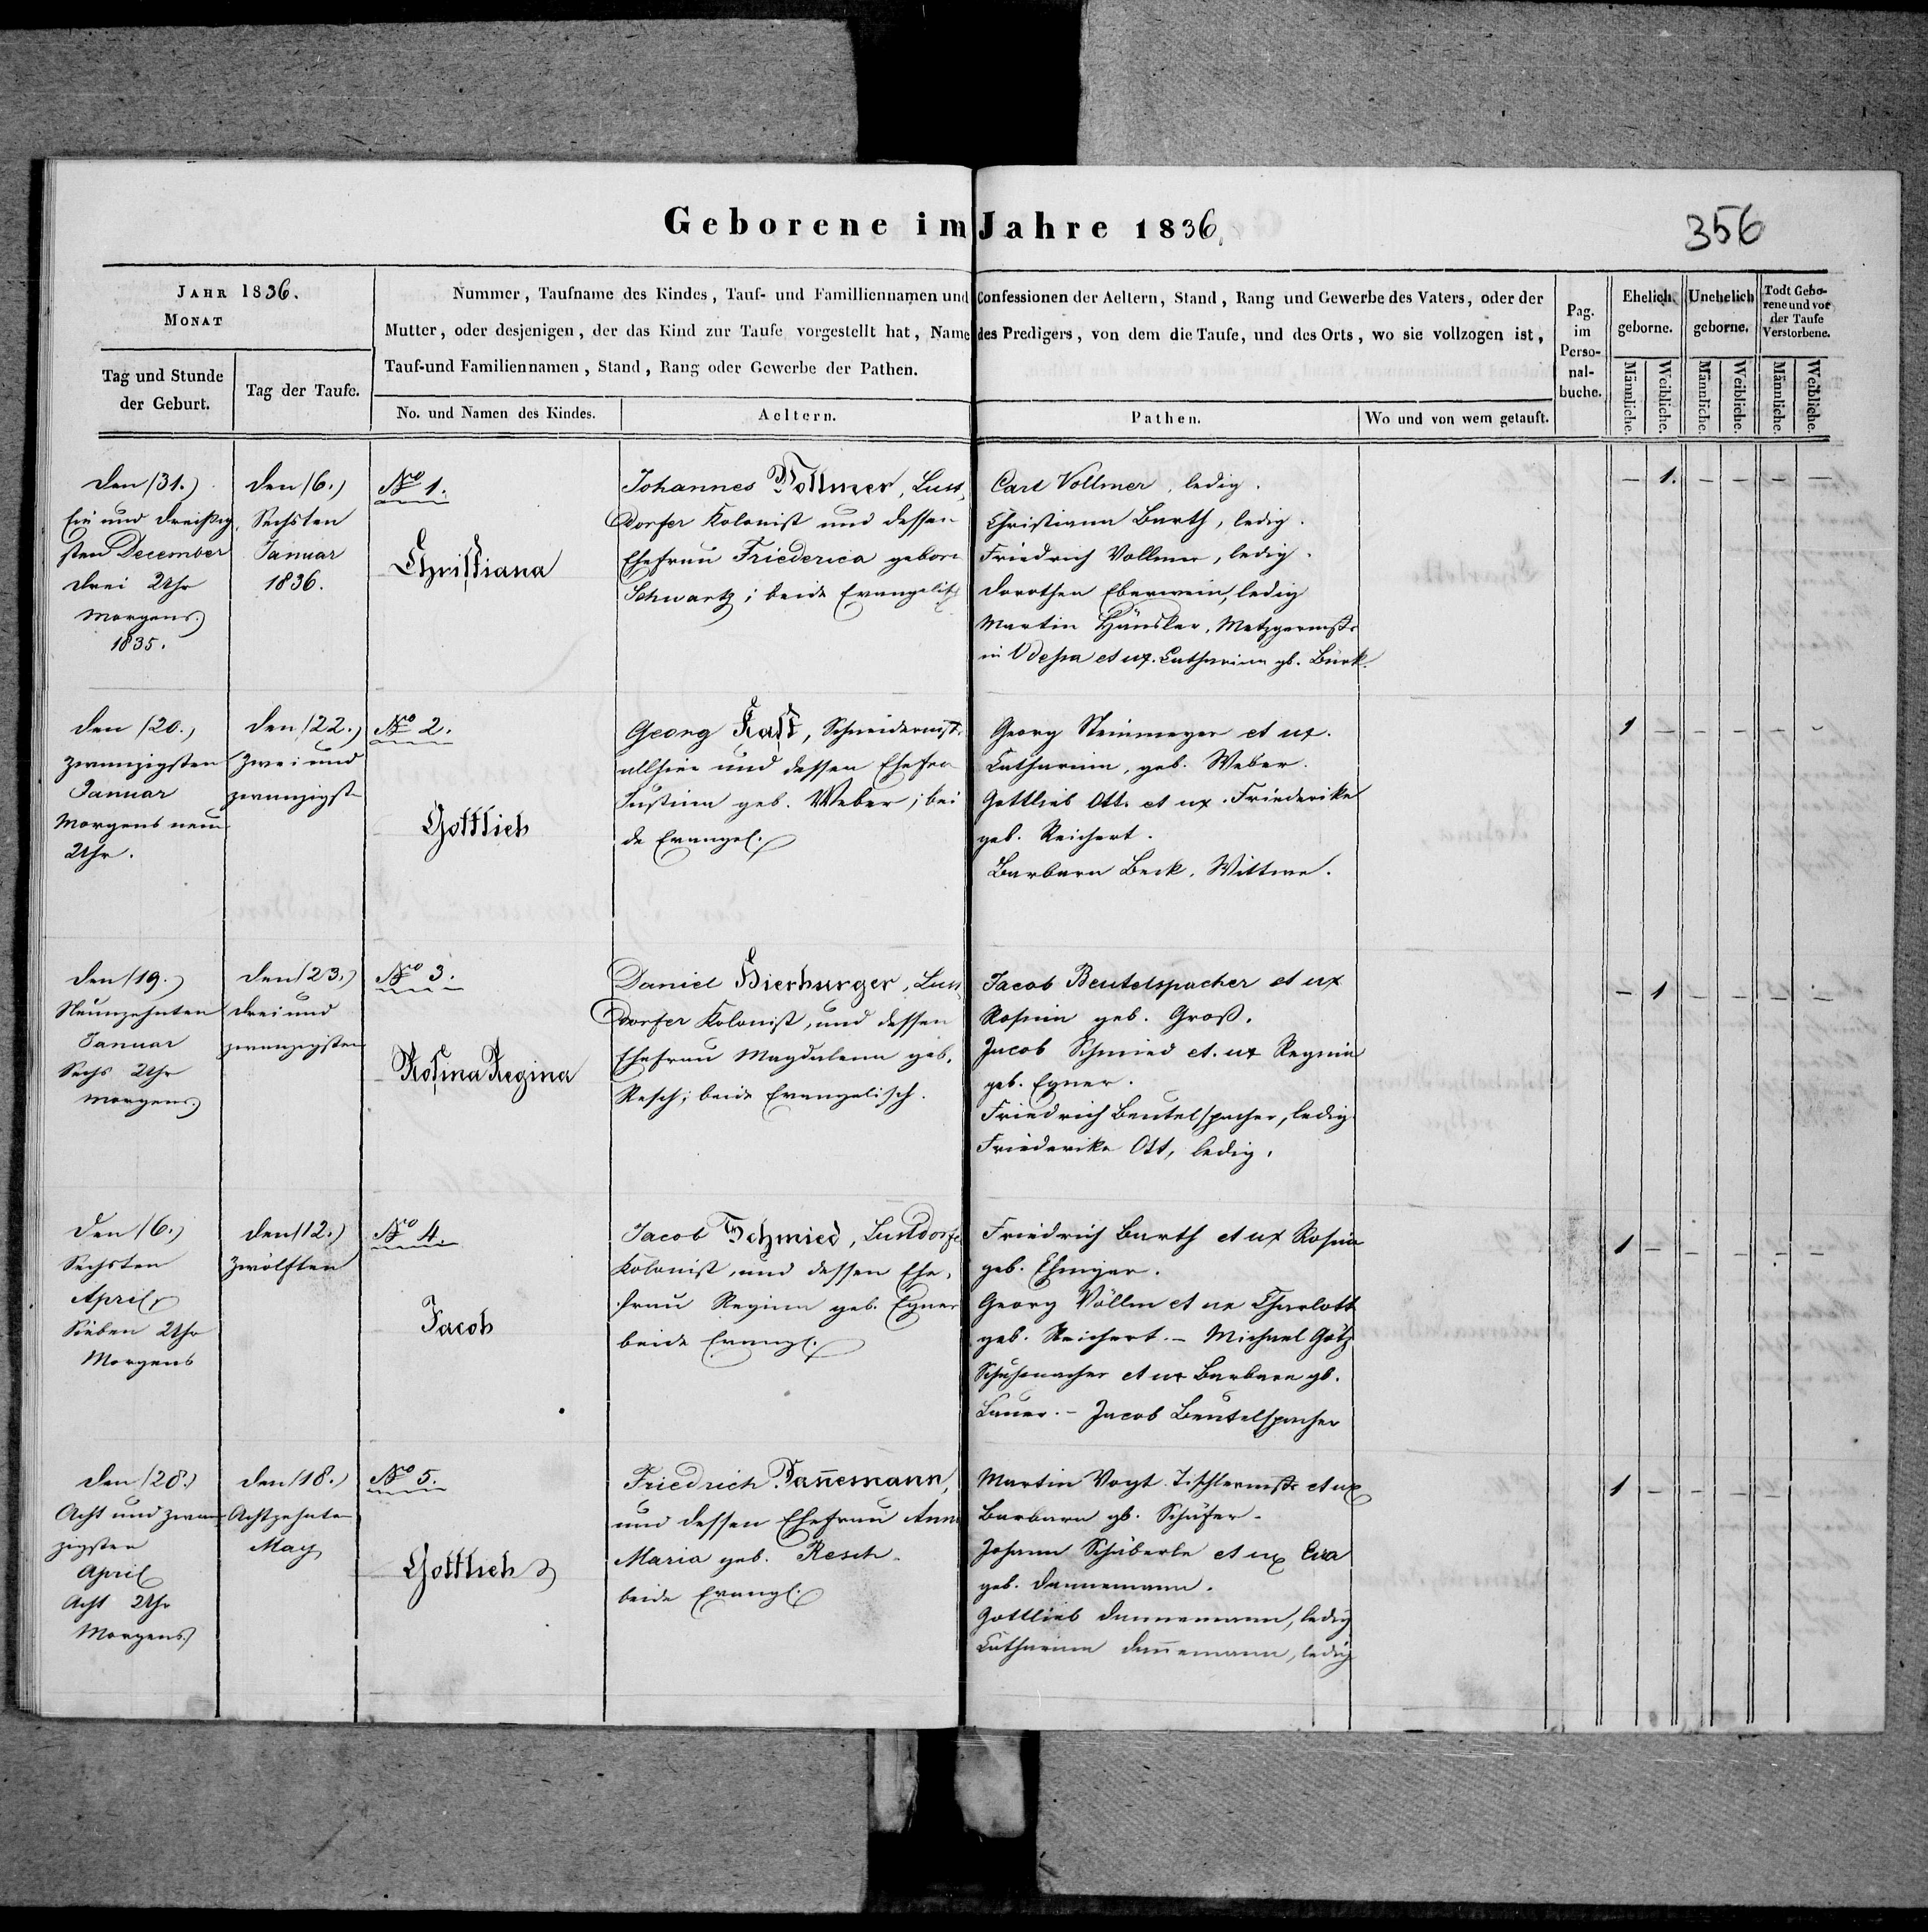 Geborene im Jahre 1836.
356
JAHR 1836.
MONAT
Tag und Stunde
der Geburt.
Tag der Taufe.
Nummer, Taufname des Kindes, Tauf- und Familliennamen und Confessionen der Aeltern, Stand, Rang und Gewerbe des Vaters, oder der
Mutter, oder desjenigen, der das Kind zur Taufe vorgestellt hat, Name des Predigers, von dem die Taufe, und des Orts, wo sie vollzogen ist,
Tauf-und Familiennamen, Stand, Rang oder Gewerbe der Pathen.
No. und Namen des Kindes.
Aeltern.
Pathen.
Wo und von wem getauft.
Pag.
im
Perso-
nal-
buche.
Ehelich
geborne.
Unehelich
geborne.
Todt Gebo-
rene und vor
der Taufe
Verstorbene.
Männliche.
Weibliche.
Männliche.
Weibliche.
Männliche.
Weibliche.
den (31.)
Ein und dreißig
sten December
drei Uhr
Morgens.
1835.
den (6.)
Sechsten
Januar
1836.
No 1.
Christiana
Johannes Vollmer, Lust
dorfer Kolonist und dessen
Ehefrau Friederica gebore
Schwartz; beide Evangelisch
Carl Vollmer, ledig.
Christiana Barth, ledig.
Friedrich Vollmer, ledig.
Dorothea Eberwein, ledig
Martin Häusler, Metzgermstr
in Odessa et ux. Catharina gb. Bürk.
– 1. – – – –
den (20.)
zwanzigsten
Januar
Morgens neun
Uhr.
den (22.)
Zwei und
zwanzigst
No 2.
Gottlieb
Georg Kast, Schneidermstr
allhier und dessen Ehefra
Justina geb. Weber; bei
de Evangel.
Georg Steinmeyer et ux.
Catharina, geb. Weber.
Gottlieb Ott et ux. Friederike
geb. Reichert.
Barbara Beck, Wittwe.
1 – – – – –
den (19.)
Neunzehnten
Januar
Sechs Uhr
Morgens
den (23.)
drei und
zwanzigsten
No 3.
Rosina Regina
Daniel Bierburger, Lust
dorfer Kolonist, und dessen
Ehefrau Magdalena geb.
Resch; beide Evangelisch.
Jacob Beutelspacher et ux
Rosina geb. Groß.
Jacob Schmied et. ux Regina
geb. Egner.
Friedrich Beutelspacher, ledig
Friederike Ott, ledig.
– 1 – – – –
den (6.)
Sechsten
April
Sieben Uhr
Morgens
den (12.)
Zwölften
No 4.
Jacob
Jacob Schmied, Lustdorfe
Kolonist, und dessen Ehe-
frau Regina geb. Egner
beide Evangl.
Friedrich Barth et ux Rosina
geb. Ehniger.
Georg Völlm et ux Charlott
geb. Reichert. – Michael Götz
Schuhmacher et ux Barbara gb.
Lauer. – Jacob Beutelspacher
1 – – – – –
den (28.)
Acht und zwan
zigsten
April
Acht Uhr
Morgens
den (18.)
Achtzehnten
May
No 5.
Gottlieb
Friedrich Dan̄emann,
und dessen Ehefrau Anna
Maria geb. Resch.
beide Evangl.
Martin Vogt Tischlermstr et ux
Barbara gb. Schäfer.
Johann Schüberle et ux Eva
geb. Dannemann.
Gottlieb Dannemann, ledig
Catharina Dan̄emann, ledig
1 – – – – –